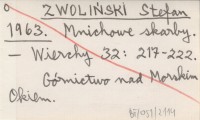 ZWOLIŃSKI Stefan
1963. Mnichowe skarby.
— Wierchy 32: 217-222.
Górnictwo nad Morskim
Okiem.